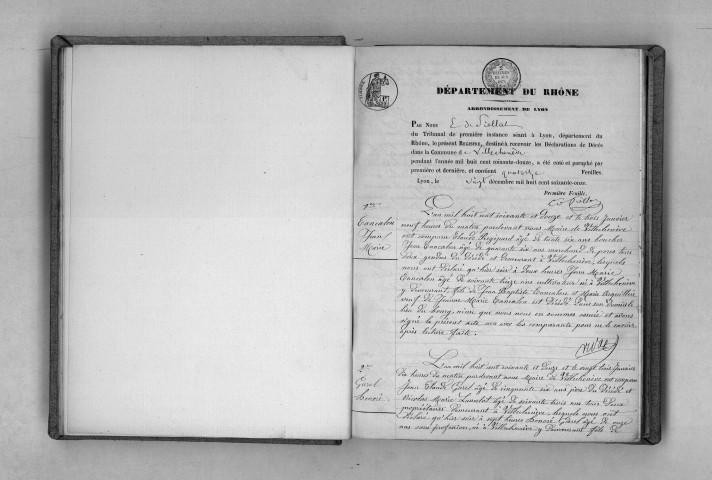 DÉPARTEMENT DU RHÔNE
ARRONDISSEMENT DE LYON
PAR NOUS E. de
du Tribunal de première instance séant à Lyon, département du
Rhône, le présent REGISTRE, destiné à recevoir les Déclarations de Décès
dans la Commune de Villechenève
pendant l'année mil huit cent soixante-douze, a été coté et paraphé par
première et dernière, et contient quatorze Feuilles.
Lyon, le vingt décembre mil huit cent soixante-onze.
Première Feuille.
1er
Cancalon
Jean
Marie
L'an mil huit cent soixante et douze et le trois Janvier
neuf heures du matin pardevant nous Maire de Villechenève
ont comparu Claude âgé de trente six ans boucher
Jean Cancalon âgé de quarante six ans marchand de porcs tous
deux gendres du décédé et demeurant à Villechenève, lesquels
nous ont déclaré qu'hier soir à deux heures Jean Marie
Cancalon âgé de soixante treize ans cultivateur né à Villechenève
y demeurant, fils de Jean Baptiste Cancalon et Marie
veuf de Jeanne Marie Cancalon est décédé dans son domicile
lieu du bourg, ainsi que nous nous en sommes assuré et avons
signé le présent acte non avec les comparants pour ne le savoir
après lecture faite.
2e
Garel
Honoré
L'an mil huit cent soixante et douze et le vingt trois Janvier
dix heures du matin pardevant nous Maire de Villechenève ont comparu
Jean Claude Garel âgé de cinquante six ans père du décédé et
Nicolas Marie âgé de soixante trois ans tous deux
propriétaires demeurant à Villechenève, lesquels nous ont
déclaré qu'hier soir à sept heures Honoré Garel âgé de onze
ans sans profession, né à Villechenève y demeurant fils de